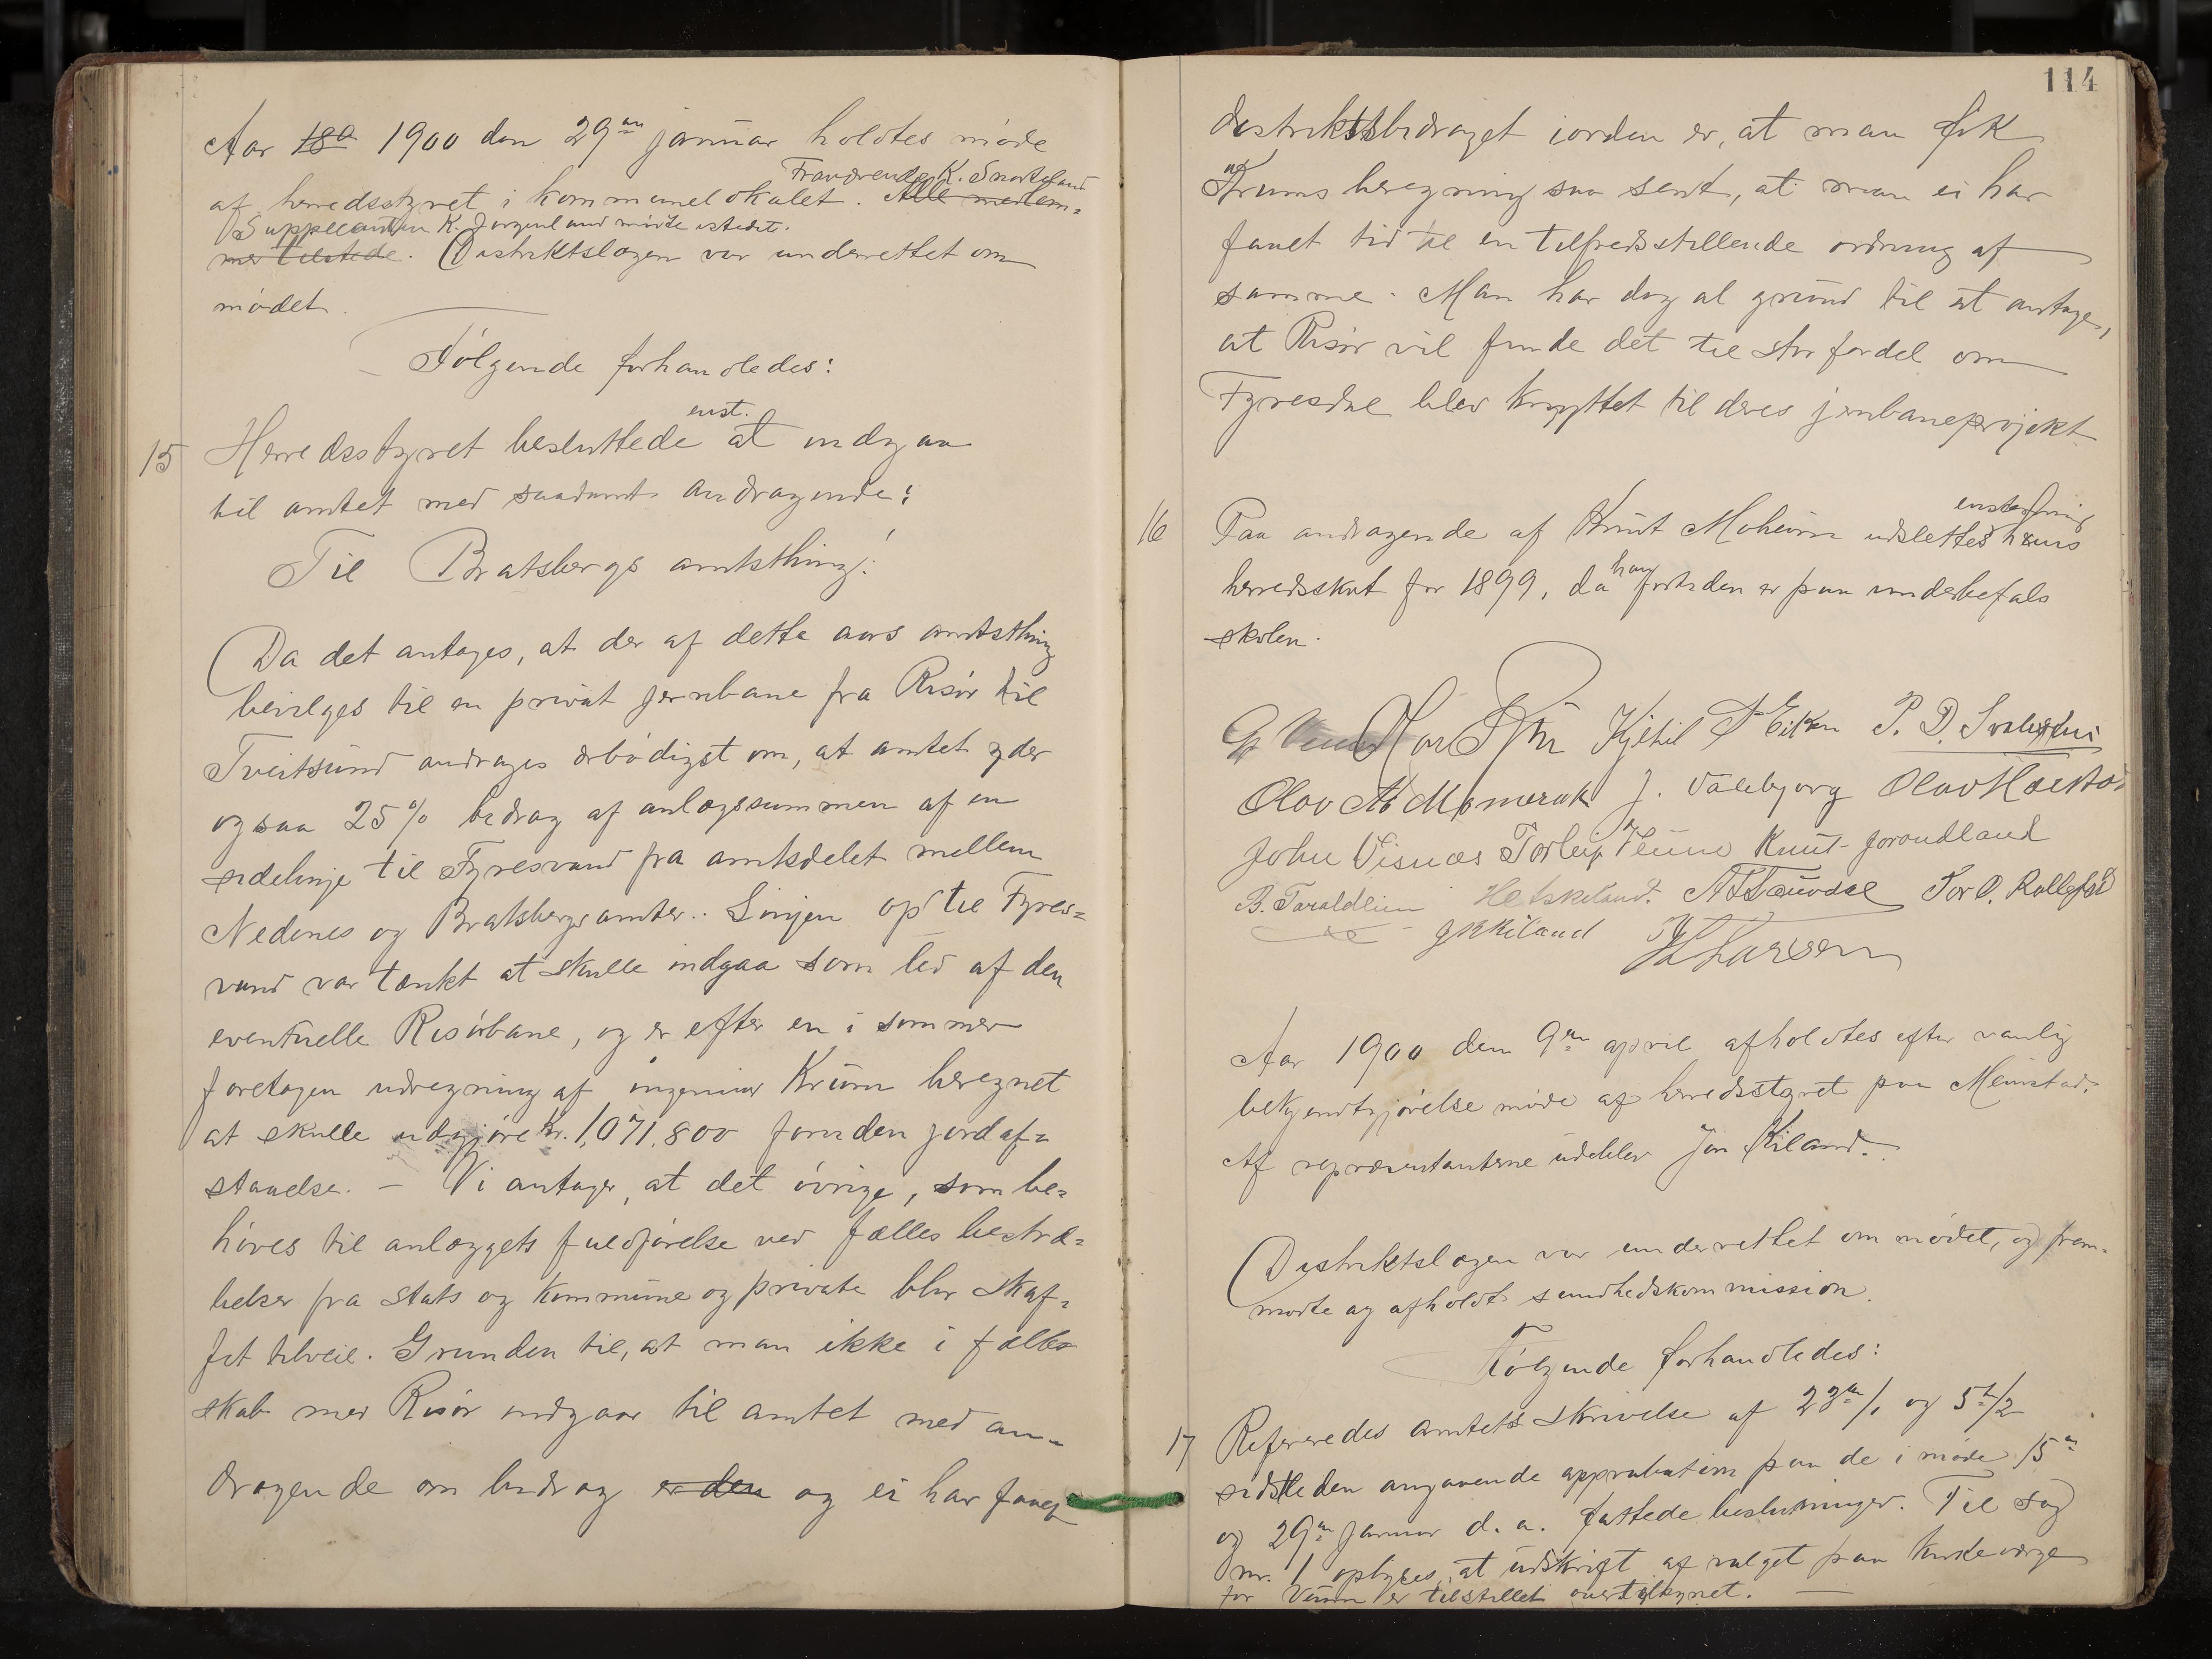 Aar 180 1900 den 29de januar holdtes møde
Fraværende K. Snarteland
af herredsstyret i kommunelokalet. Alle medlem=
Suppleanten K. Jorgenland mødte istedet.
mer tilstede. Distriktslægen var underrettet om
mødet.
Følgende forhandledes:
enst.
15 Herredsstyret besluttede at indgaa
til amtet med saadant andragende:
Til Bratsbergs amtsthing!
Da det antages, at der af dette aars amtsthing
bevilges til en privat jernbane fra Risør til
Tveitsund andrages ærbødigst om, at amtet yder
ogsaa 25% bidrag af anlægssummen af en
sidelinje til Fyresvand fra amtsdelet mellem
Nedenes og Bratsbergs amter. Linjen op til Fyres=
vand var tænkt at skulle indgaa som led af den
eventuelle Risørbane, og er efter en i sommer
foretagen udregning af ingeniør Krum beregnet
at skulle udgjøre kr. 1,071,800 foruden jordaf=
staaelse. — Vi antager, at det øvrige, som be=
høves til anlæggets fuldførelse ved fælles bestræ=
belser fra stats og kommune og private blir skaf=
fet tilveie. Grunden til, at man ikke i fælles
skab med Risør indgaar til amtet med an=
dragende om bidrag er den og ei har faaet
114
distriktsbidraget iorden er, at man fik
Krums beregning saa sent, at man ei har
faaet tid til en tilfredsstillende ordning af
samme. Man har dog al grund til at antage,
at Risør vil finde det til stor fordel om
Fyresdal blev knyttet til deres jernbaneprojekt.
enstemmig
16 Paa andragende af Knut Moheim udslettes hans
herredsskat for 1899, da han fortiden er paa underbefals
skolen.
Kjetil Eiken P. D.
Olov Momrak J. Valebjørg Olav
John Visnæs Torleif Veum Knut Jorandland
B. Taraldlien Tor O.
Kiland
Larsen
Aar 1900 den 9de april afholdtes efter vanlig
bekjendtgjørelse møde af herredsstyret paa Meinstad.
Af repræsentanterne udeblev Jon Kiland.
Distriktslægen var underrettet om mødet, og frem=
mødte og afholdt sundhedskommission.
Følgende forhandledes:
17 Refereredes amtets skrivelse af 23de/1 og 5te/2
sidstleden angaaende approbation paa de i møde 15de
og 29de januar d. a. fattede beslutninger. Til sag
nr. 1 oplyses, at udskrift af valget paa kirkeværge
for Veum er tilstillet overtilsynet.